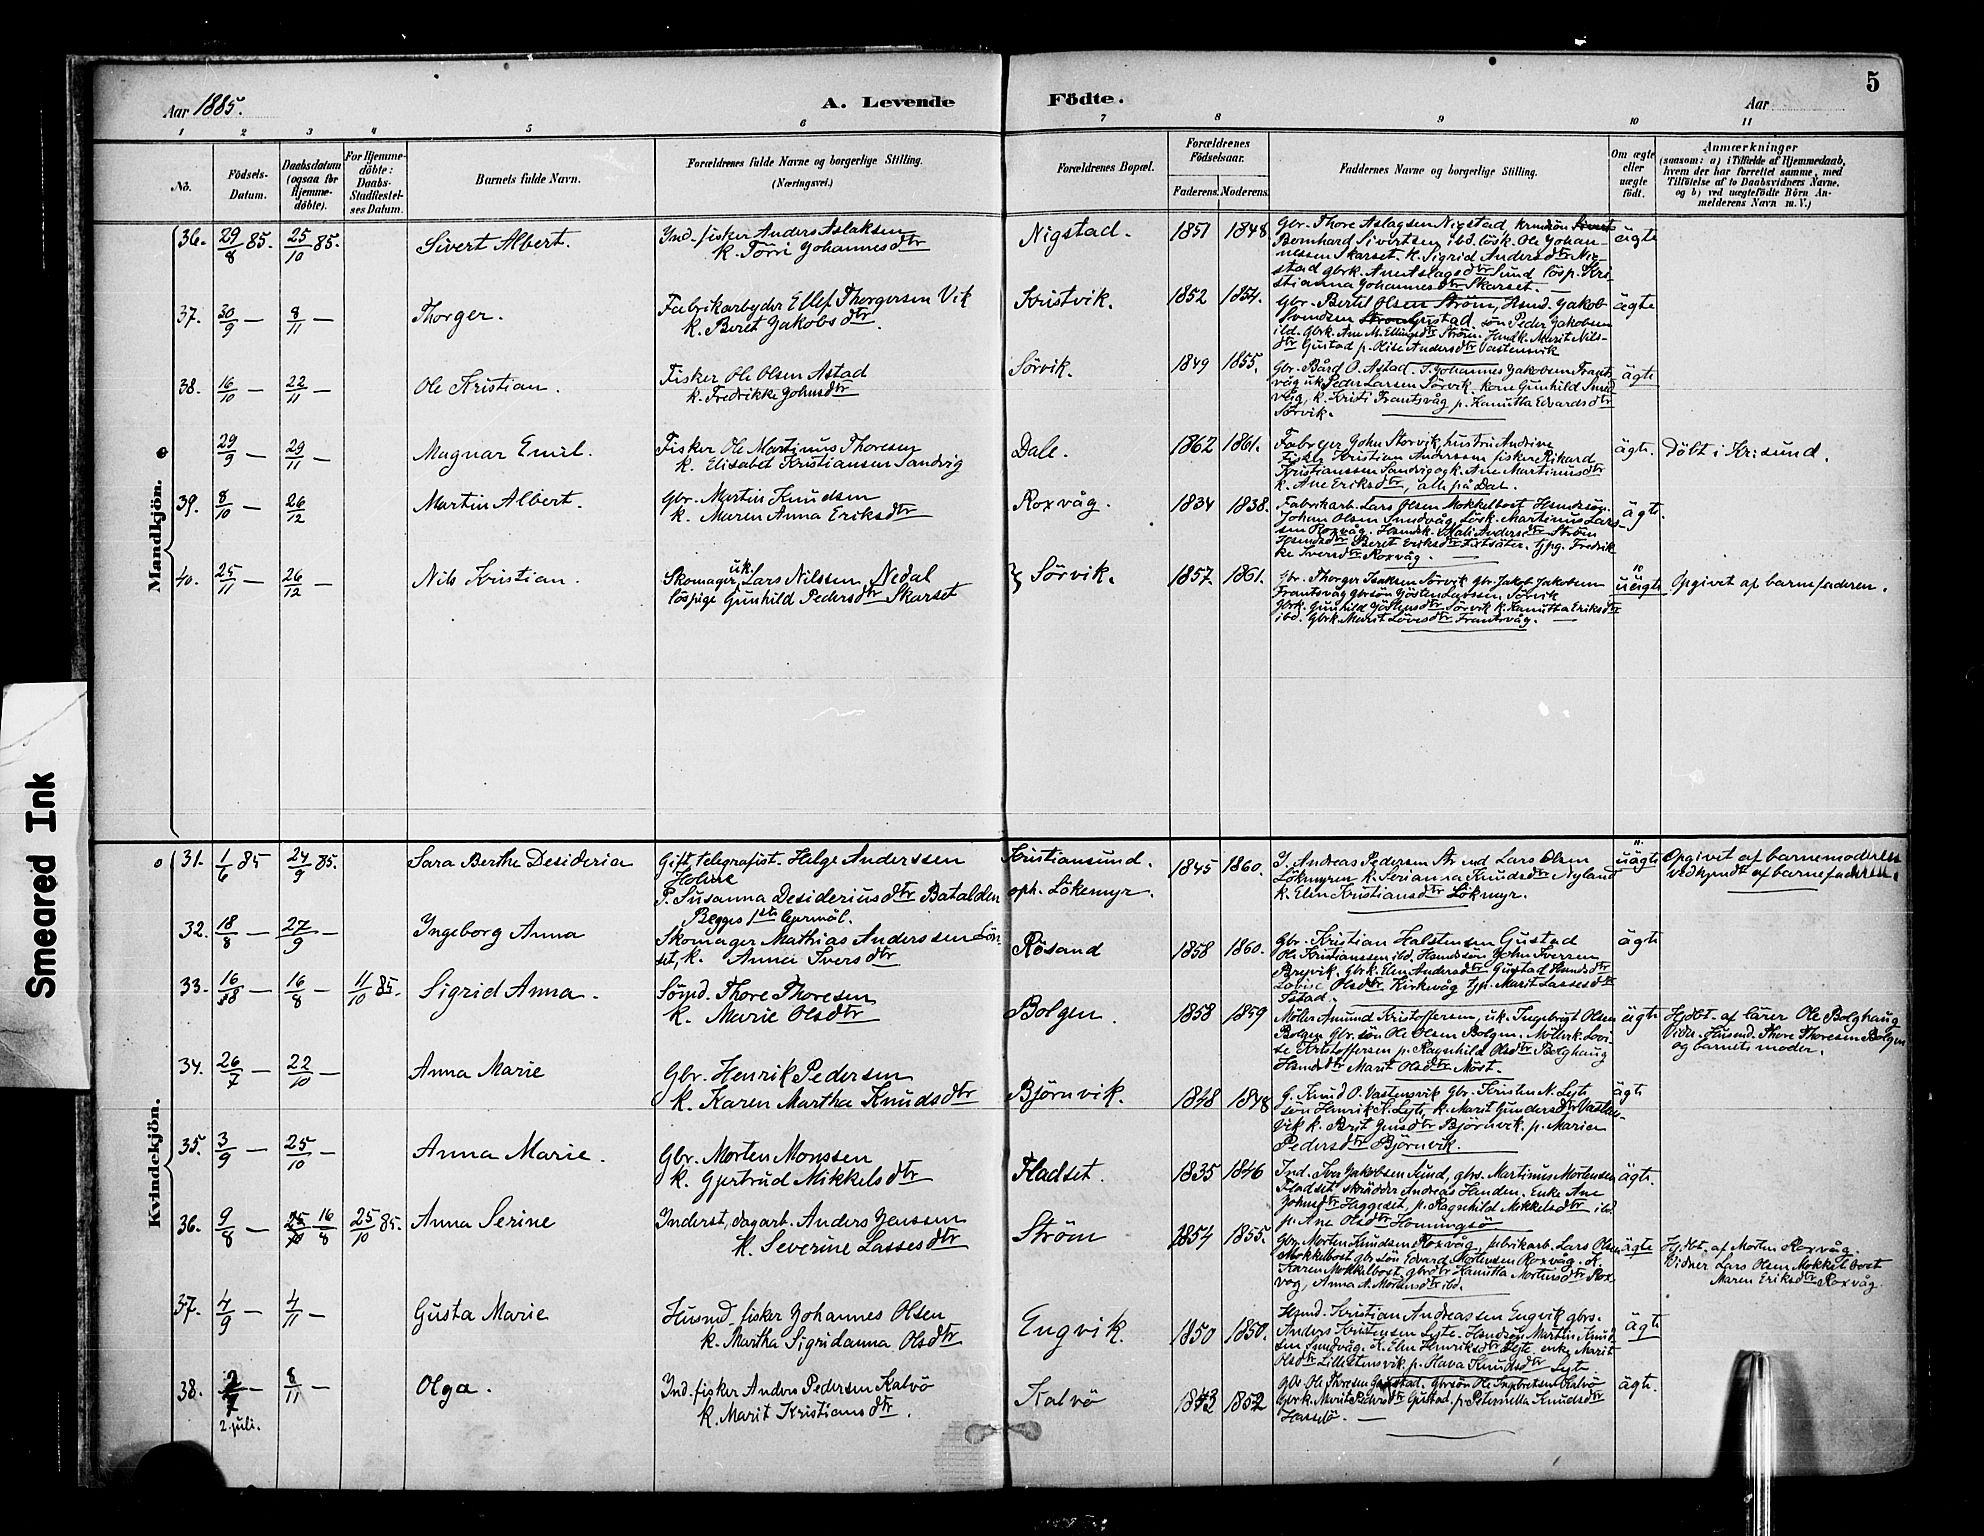 5
Aar 1885.
A. Levende Födte.
Aar
1 2 3 4 5 6 7 8 9 10 11
No.
Födsels-Datum.
Daabsdatum (ogsaa for Hjemme-döbte).
For Hjemme-döbte: Daabs-Stadfæstel-ses Datum.
Barnets fulde Navn.
Forældrenes fulde Navne og borgerlige Stilling.
(Næringsvei.)
Forældrenes Bopæl.
Forældrenes Födselsaar.
Faderens. Moderens.
Faddernes Navne og borgerlige Stilling.
Om ægte eller uægte födt.
Anmærkninger
(saasom: a) i Tilfælde af Hjemmedaab,
hvem der har forrettet samme, med
Tilföielse af to Daabsvidners Navne,
og b) ved uægtefödte Börn An-
melderens Navn m. V.)
Mandkjön.
36. 29/8 85. 25/10 85. Sivert Albert.
Ind. fisker Anders Aslaksen
k. Törri Johannesdtr
Nigstad. 1851 1848
Gbr. Thore Aslagsen Nigstad,
Bernhard Sivertsen ibd. lösk. Ole Johan-
nessen Skarset. k. Sigrid Andersdtr Nig-
stad gbrk. Ane Aslagsdtr Sund lösp. Kri-
stianna Johannesdtr Skarset.
ägte
37. 30/9 — 8/11 — Thorger.
Fabrikarbyder Ellef Thorgersen Vik
k. Beret Jakobsdtr.
Kristvik. 1852 1854.
Gbr. Bertil Olsen Ström, Hsmd. Jakob
Svendsen Gustad. sön Peder Jakobsen
ibd. Gbrk. Ane M. Ellingsdtr Ström. Hsmdk. Marit Nils-
dtr Gustad p. Olise Andersdtr Vastensvik
ägte
38. 16/10 — 22/11 — Ole Kristian.
Fisker Ole Olsen Astad
k. Fredrikke Johnsdtr
Sörvik. 1849 1855.
Gbr. Bård O. Astad. Johannes Jakobsen Frants-
våg uk. Peder Larsen Sörvik, kone Gunhild
k. Kristi Frantsvåg p. Hanutta Edvardsdtr
Sörvik.
ägte
29/9 — 29/11 — Magnar Emil.
Fisker Ole Martinus Thoresen
k. Elisabet Kristiansen Sandvig
Dale. 1862 1861.
John Storvik, hustru Andrine
Fisker Kristian Anderssen fisker Rikard
Kristianssen Sandvig og k. Ane Martinusdtr
k. Ane Eriksdtr, alle på Dal.
ägte. Döbt i Krisund.
39. 8/10 — 26/12 Martin Albert.
Gbr. Martin Knudsen
k. Maren Anna Eriksdtr
Roxvåg. 1834 1838.
Fabrikarb. Lars Olsen Mokkelbost Hsmdsön
Johan Olsen Sundvåg, Lösk. Martinus Lars-
sen Roxvåg. Hsmdsk. Mali Andersdtr Ström
Beret Eriksdtr tjpg. Fredrik-
ke Iversdtr Roxvåg.
ägte.
40. 25/11 — 26/12 — Nils Kristian.
Skomager, uk. Lars Nilssen Nedal
löspige Gunhild Pedersdtr Skarset
Sörvik. 1857. 1861.
Gbr. Thorger Isaksen Sörvik gbr. Jakob Jakobsen
Frantsvåg gbrsön Jösten Larssen Sörvik
Gbrk. Gunhild Jöstensdtr Sörvik k. Hanutta Eriksdtr
ibd. Gbrk. Marit Lövesdtr Frantsvåg.
uägte Opgivet af barnefaderen.
Kvindekjön.
31. 1/6 85 24/9 85. Sara Berthe Desideria
Gift, telegrafist. Helge Anderssen
Holme
P. Susanna Desideriusdtr Batalden
Begges 1ste lejermål.
Kristiansund.
oph. Lökemyr.
1845 1860.
Andreas Pedersen Lars Olsen
Lökmyren k. Serianna Knudsdtr Nyland
k. Elen Kristiansdtr Lökmyr.
uägte Opgivet af barnemoderen
vedkyndt af barnefaderen.
32. 18/8 — 27/9 — Ingeborg Anna
Skomager Mathias Anderssen Lön-
set, k. Anna Iversdtr
Rösand 1858 1860.
Gbr. Kristian Halstensen Gustad
Ole Kristianssen ibd. Hsmdsön John Iversen
Brejvik. Gbrk. Elen Andersdtr Gustad Hsmdsdtr
Lovise Olsdtr Kirkevåg tjp. Marit Lassesdtr
Istad.
ägte
33. 16/8 — 16/8 — 11/10 85. Sigrid Anna.
Sömd. Thore Thoresen
k. Marie Olsdtr
Bolgen. 1858 1859
Möler Amund Kristoffersen, uk. Ingebrigt Olsen
Bolgen Gbr. sön Ole Olsen Bolgen. Mölerk. Lovi-
se Kristoffersen p. Ragnhild Olsdtr Bolghaug
Hsmdsdtr Marit Olsdtr Möst.
ägte Hjdbt. af lärer Ole Bolghaug
Vidn. Husmd. Thore Thoresen Bolgen
og barnets moder.
34. 26/7 — 22/10 — Anna Marie
Gbr. Henrik Pedersen
k. Karen Martha Knudsdtr
Björnvik. 1848 1848
G. Knud O. Vastensvik Gbr. Kristen N. Lejte
sön Henrik K. Lejte, k. Marit Gundersdtr Vasten-
vik k. Brit Jensdtr Björnvik. p. Maren
Pedersdtr Björnvik.
ägte
35. 3/9 — 25/10 — Anna Marie.
Gbr. Morten Monssen
k. Gjertrud Mikkelsdtr
Fladset. 1835 1846
Ind. Iver Jakobsen Sund, gbrs. Martinus Mortensen
Fladset skrädder Andreas Handen. Enke Ane
Johnsdtr Heggeset, p. Ragnhild Mikkelsdtr ibd.
p. Ane Olsdtr Honningsö
ägte.
36. 9/8 — 25/10 16/8 25/10 85. Anna Serine
Inderst, dagarb. Anders Jenssen
k. Severine Lassesdtr
Ström 1854 1855.
Gbr. Morten Knudsen Roxvåg, fabrikarb. Lars Olsen
Mokkelbost, gbr. sön Edvard Mortensen Roxvåg. k.
Karen Mokkelbost, gbrdtr Hanutta Mortensdtr Rox-
våg, Anna M. Mortensdtr ibd.
ägte Hjdbt. af Morten Roxvåg.
Vidner Lars Olsen Mokkelbost
Maren Eriksdtr Roxvåg
37. 4/9 — 4/11 — Gusta Marie
Husmd. fisker Johannes Olsen
k. Martha Sigridanna Olsdtr
Engvik. 1850 1850.
Hsmd. Kristian Andreassen Engvik gbrs.
Anders Kristensen Lejte. Hsmdsön Martin Knud-
sen Sundvåg. k. Elen Henriksdtr Lejte, enke Marit
Olsdtr Lillestensvik p. Hava Knudsdtr Lejte
ägte
38. 2/7 — 8/11 — Olga.
2. juli.
Ind. fisker Anders Pedersen Kalvö
k. Marit Kristiansdtr.
Kalvö 1843 1852
Gbr. Ole Thoresen Gustad. gbrsön Ole Ingebretsen Kalvö
Gbrk. Marit Pedersdtr Gustad. p. Peternilla Knudsdtr
Hasselö. —
ägte.
Smeared Ink